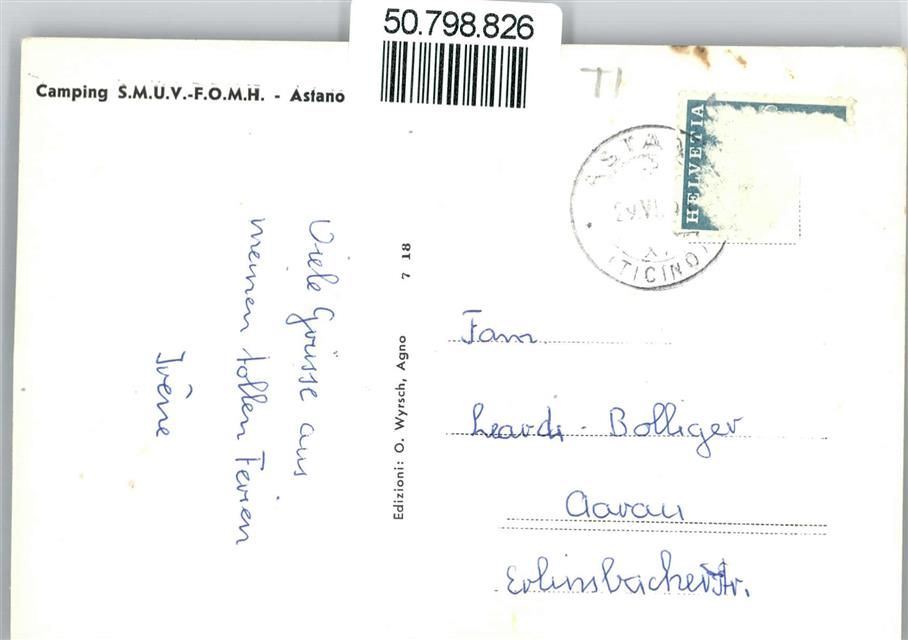 50.798.826
Camping S.M.U.V.-F.O.M.H. - Astano
TI
HELVETIA
(TICINO)
Viele Grüsse aus
meinen tollen Ferien
Irène
Edizioni: O. Wyrsch, Agno 7 18
Fam.
Leardi - Bolliger
Aarau
Erlinsbacherstr.